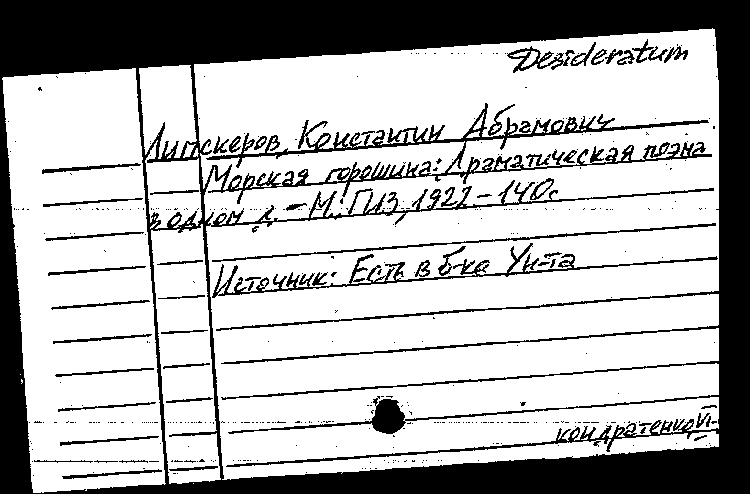 Desideratum
Липскеров, Константин Абрамович
Морская горошина: Драматическая поэма
в одном д. - М.: ГИЗ, 1922 - 140с
Источник: Есть в б-ке Ун-та
кондратенко